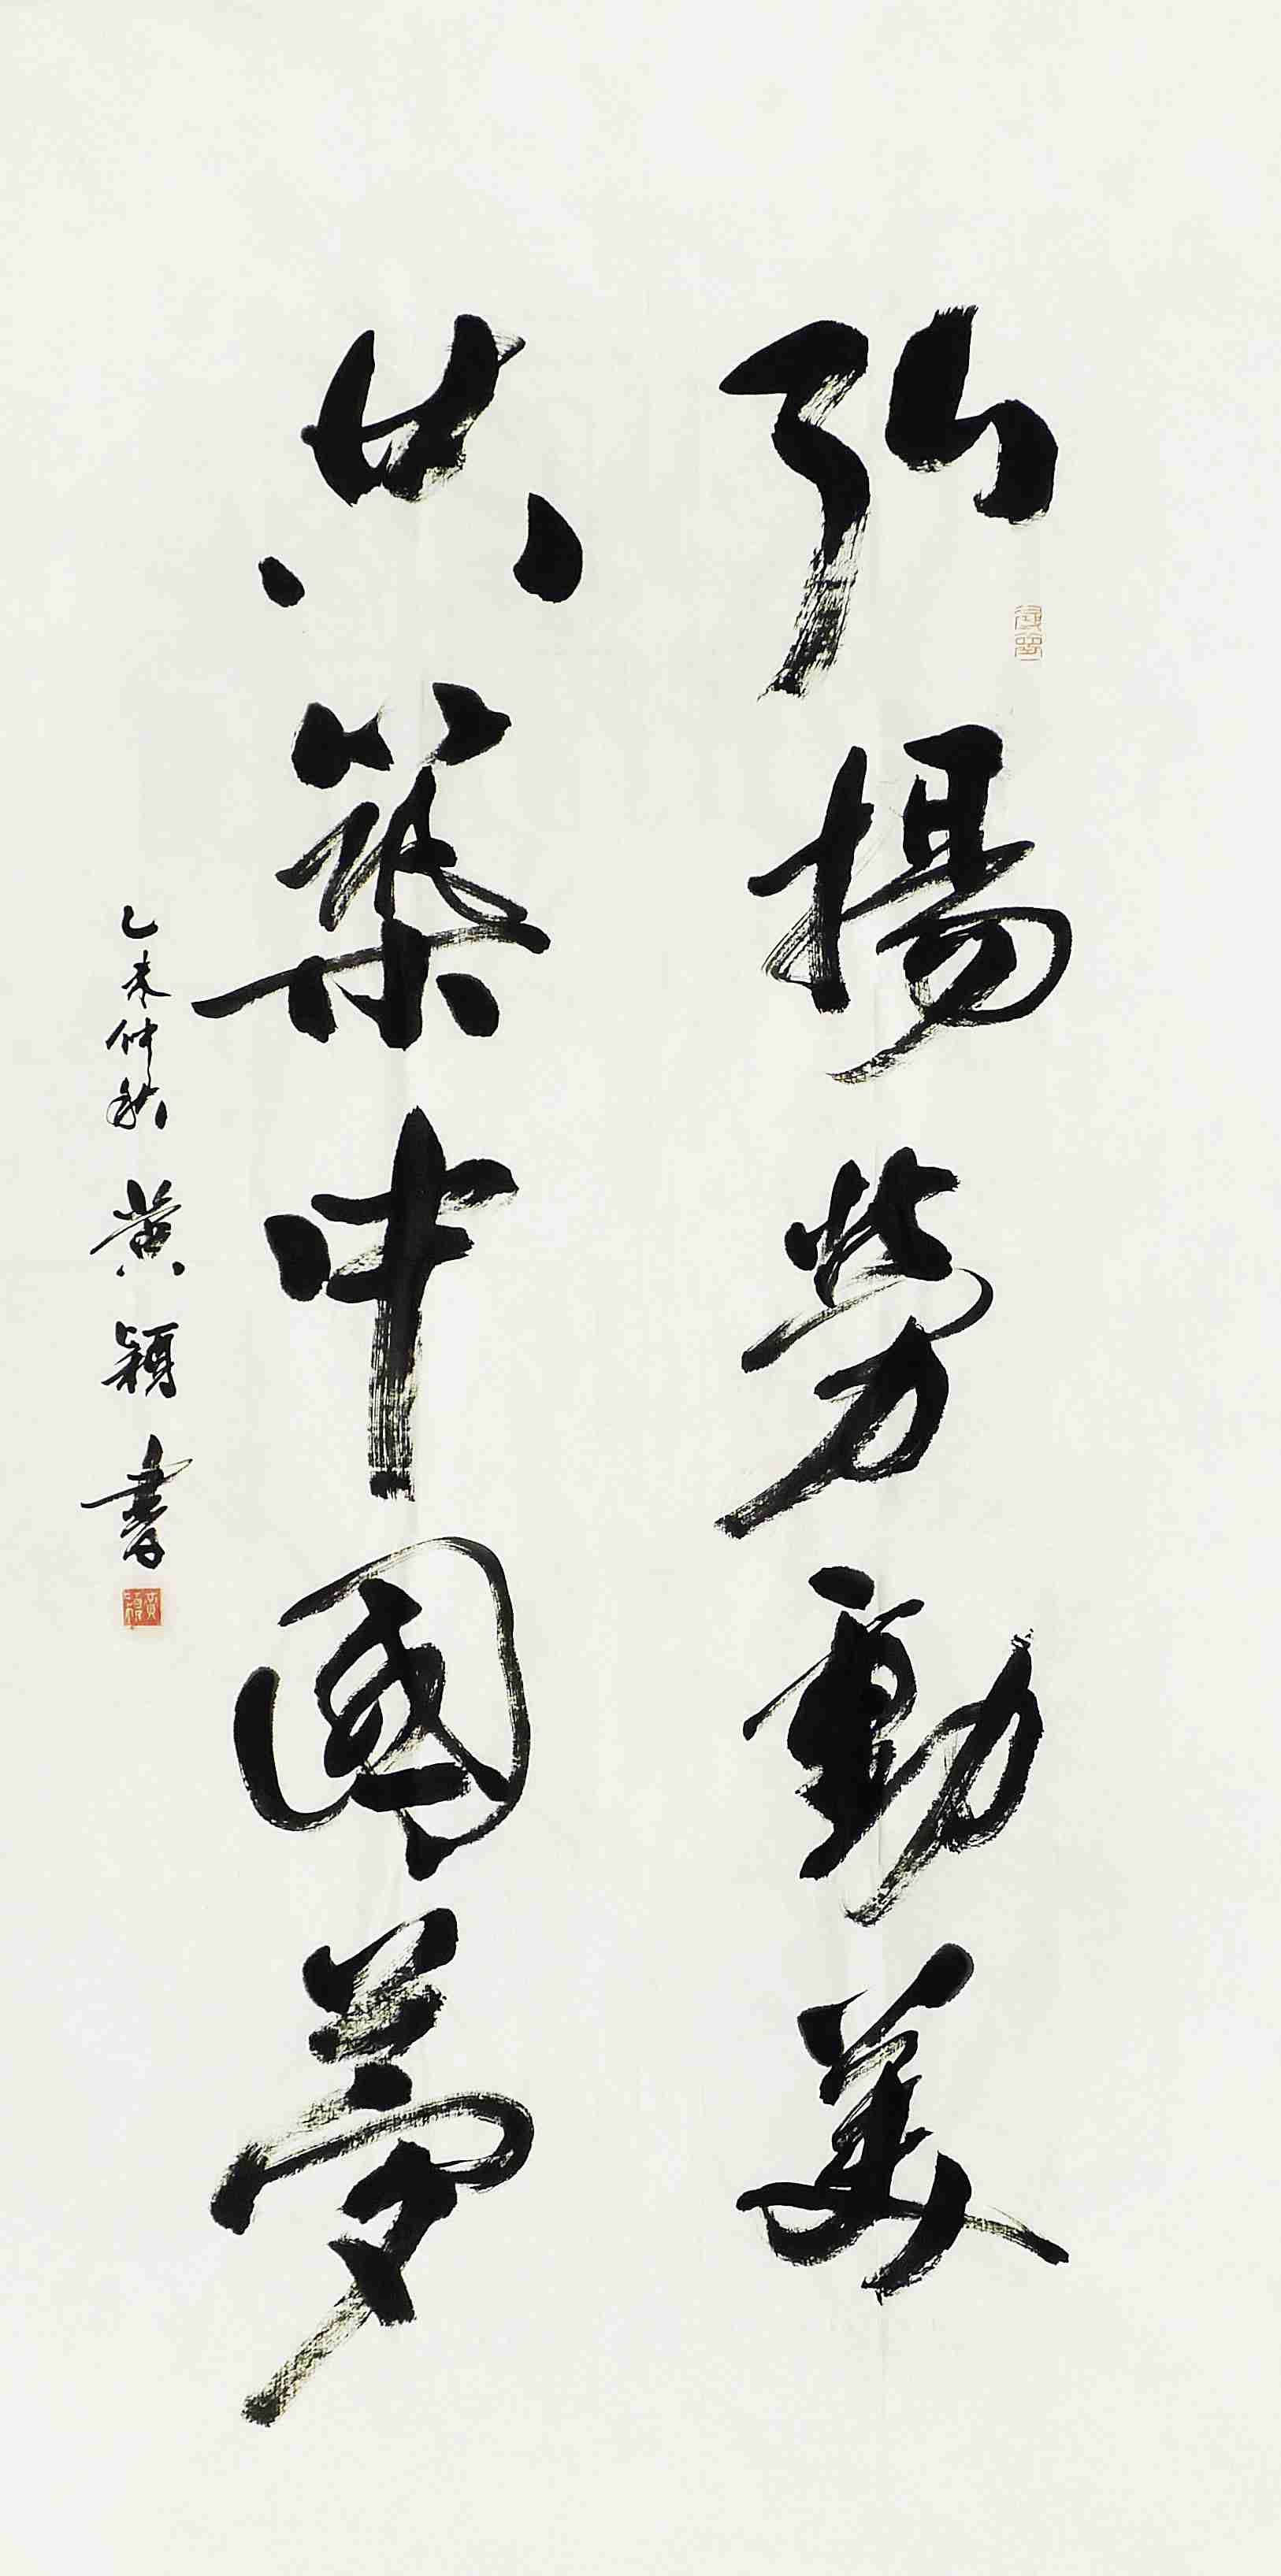 弘揚勞動美
共築中國夢
乙未仲秋 黄穎書